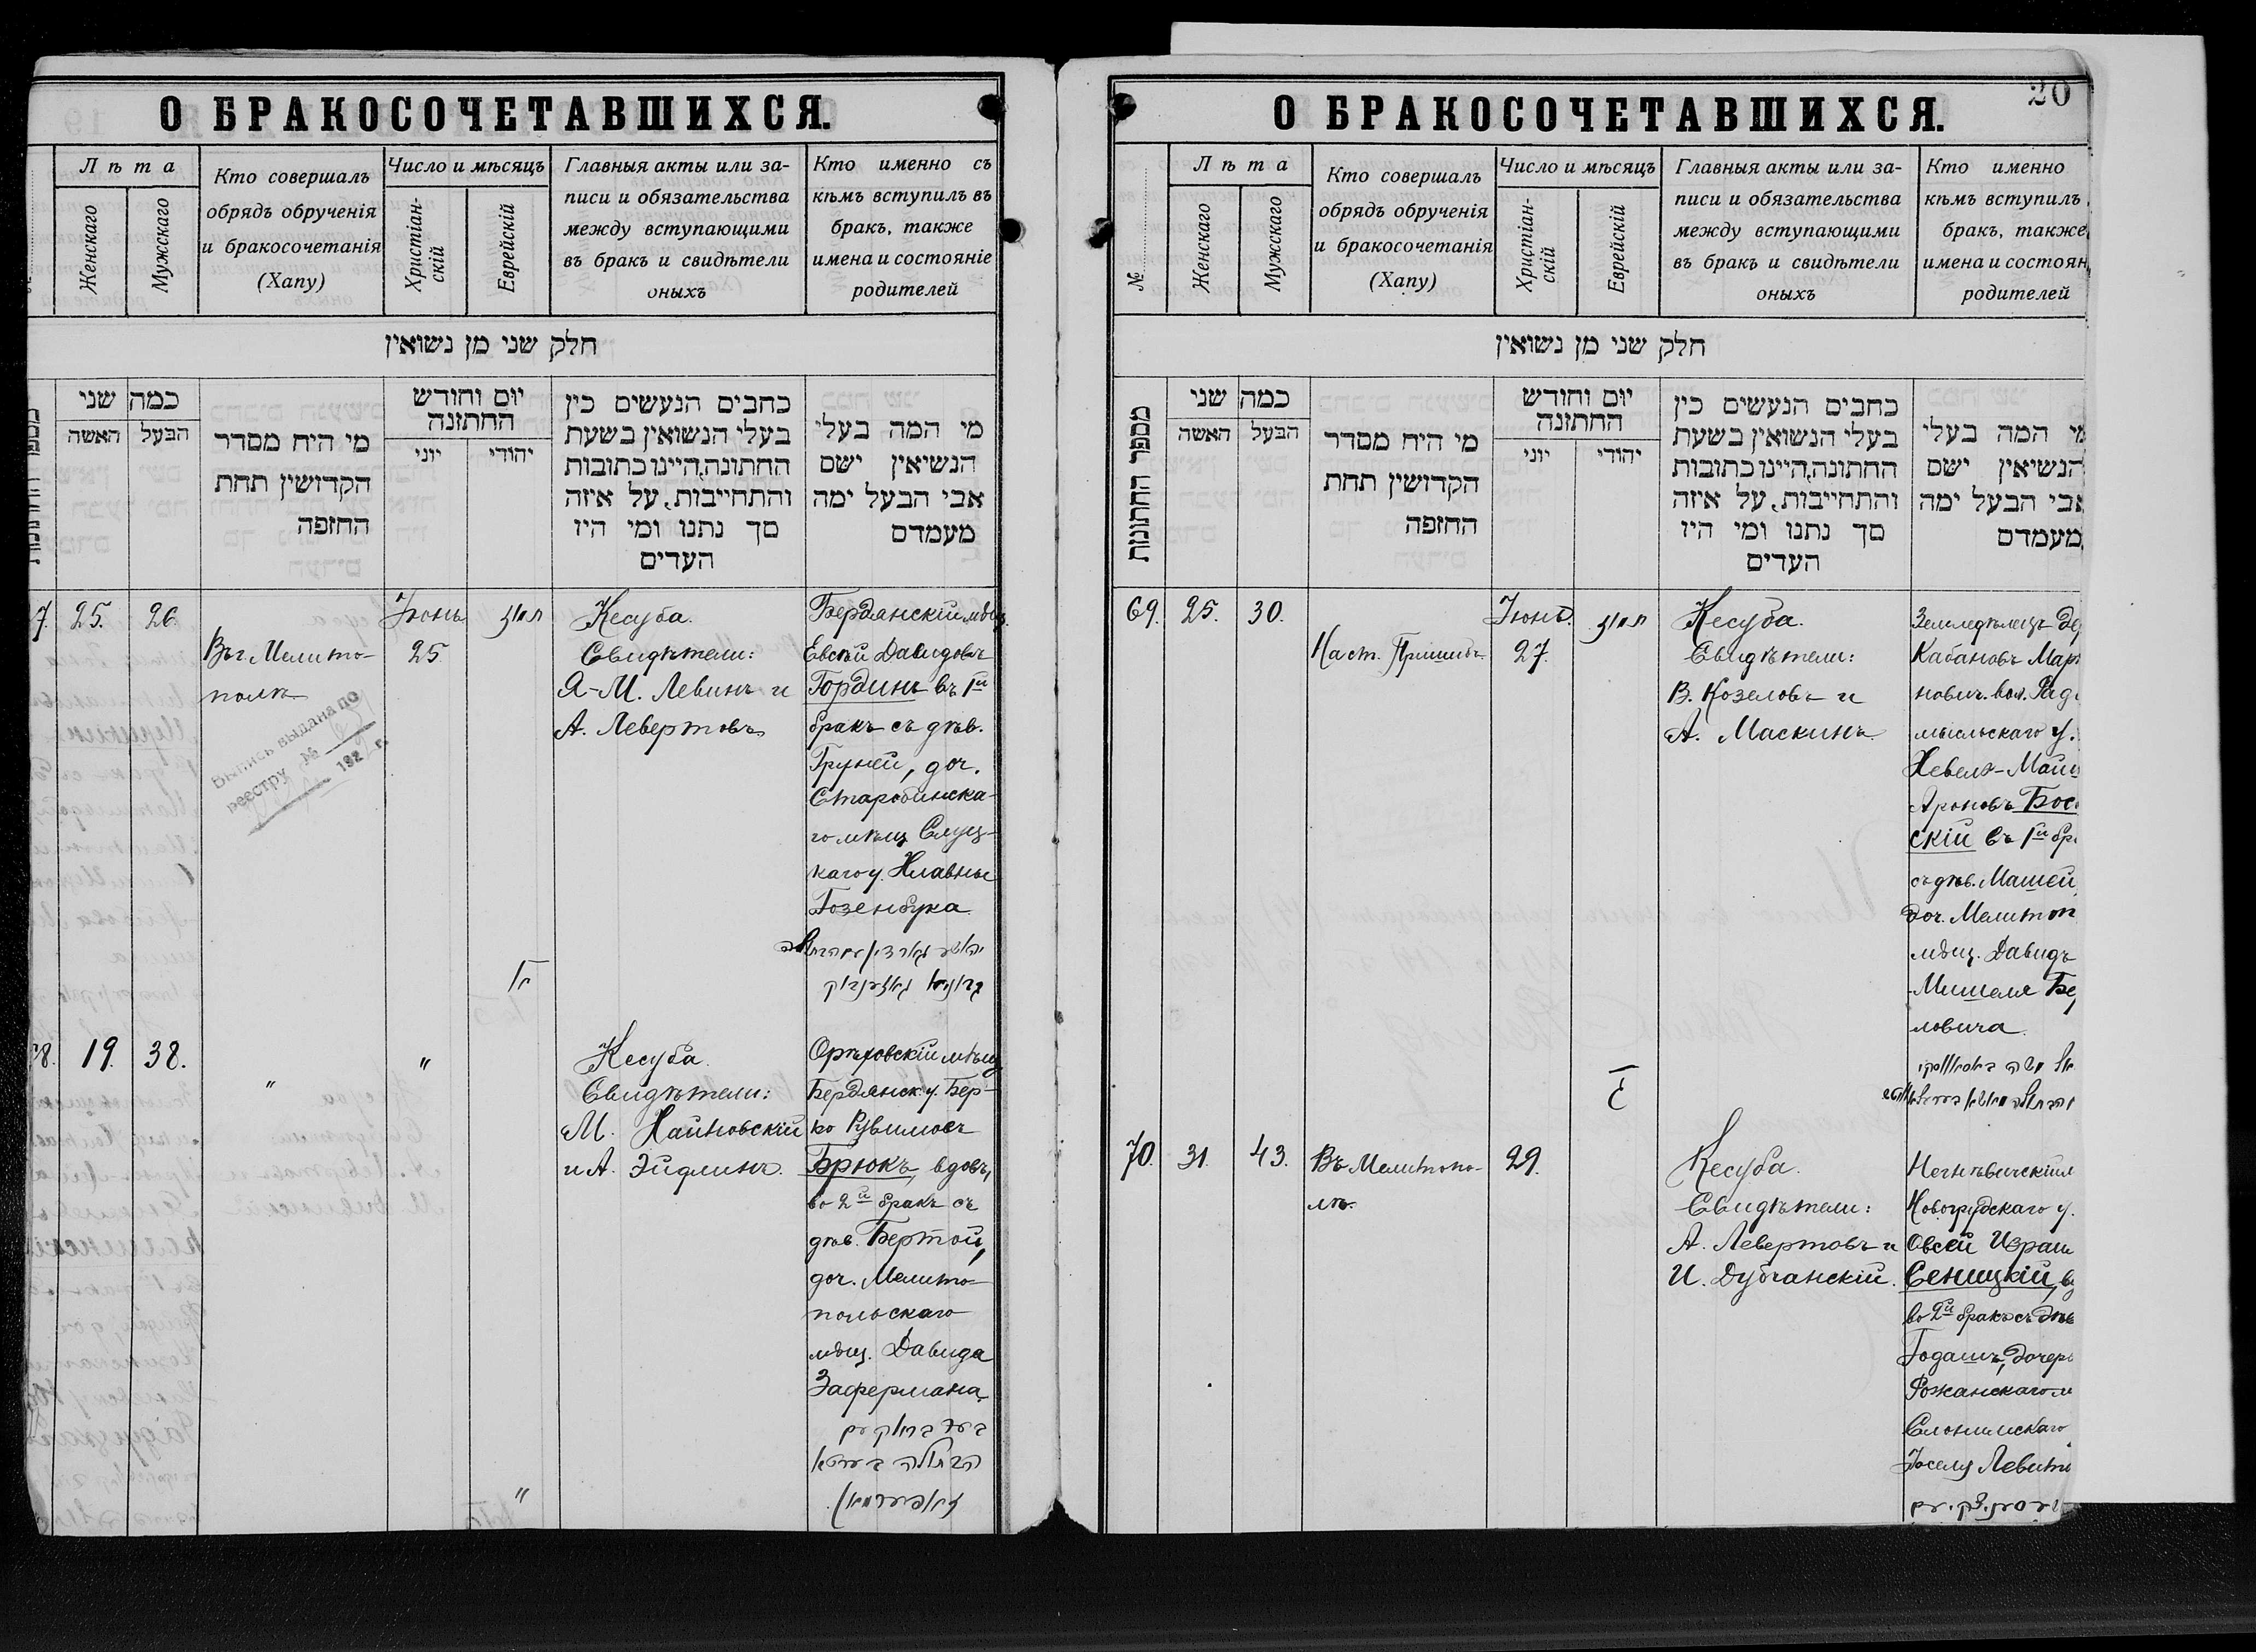 О БРАКОСОЧЕТАВШИХСЯ.
Лѣта
Женскаго
Мужскаго
Кто совершалъ
обрядъ обрученія
и бракосочетанія
(Хапу)
Число и мѣсяцъ
Христіан-
скій
Еврейскій
Главныя акты или за-
писи и обязательства
между вступающими
въ бракъ и свидѣтели
оныхъ
Кто именно съ
кѣмъ вступилъ въ
бракъ, также
имена и состояніе
родителей
חלק שני מן נשואין
כמה שני
האשה
הבעל
מי היח מסדר
הקדושין תחת
החזפה
יום וחודש
החתזנה
יוני
יהודי
כחבים הנעשים כין
בעלי הנשואין בשעת
החתונה, היינו כתובות
והתחייבות, על איזה
סך נתנו ומי היז
העדים
מי המה בעלי
הנשיאין ישם
אבי הבעל ימה
מעמדם
7. 25. 26.
Въ г. Мелито-
полѣ
Выпись выдана по
реестру №
192 г.
Іюнь
25
Кесуба.
Свидѣтели:
Я-М. Левинъ и
А. Левертовъ
Бердянскій мѣщ.
Евсѣй Давидовъ
Гординъ въ 1й
бракъ съ дѣв.
Груней, доч.
Старобинска-
го мѣщ. Слуц-
каго у. Хлавны
Гозенбука
8. 19. 38.
"
"
"
Кесуба.
Свидѣтели:
М. Хайновскій
и А. Эйдлинъ.
Орѣховскій мѣщ
Бердянск. у. Бер-
ко Рувимовъ
Брюкъ, вдовъ,
во 2й бракъ съ
дѣв. Бертой,
доч. Мелито-
польскаго
мѣщ. Давида
Зафермана
О БРАКОСОЧЕТАВШИХСЯ.
20
№
Лѣта
Женскаго
Мужскаго
Кто совершалъ
обрядъ обрученія
и бракосочетанія
(Хапу)
Число и мѣсяцъ
Христіан-
скій
Еврейскій
Главныя акты или за-
писи и обязательства
между вступающими
въ бракъ и свидѣтели
оныхъ
Кто именно
кѣмъ вступилъ
бракъ, также
имена и состоян
родителей
חלק שני מן נשואין
מספר החתונות
כמה שני
האשה
הבעל
מי היח מסדר
הקדושין תחת
החזפה
יום וחודש
החתזנה
יוני
יהודי
כחבים הנעשים כין
בעלי הנשואין בשעת
החתונה, היינו כתובות
והתחייבות, על איזה
סך נתנו ומי היז
העדים
מי המה בעלי
הנשיאין ישם
אבי הבעל ימה
מעמדם
69. 25. 30.
На ст. Пришибъ
Іюнь.
27.
Кесуба.
Свидѣтели:
В. Козеловъ и
А. Маскинъ.
Земледѣлецъ де
Кабановъ Март
нович. вол. Рад
мысльскаго у.
Хевель-Май
Ароновъ Бос
скій въ 1й бр
съ дѣв. Машей,
доч. Мелитоп
мѣщ. Давидъ
-Мишеля Бе
ловича
70. 31. 43.
Въ Мелитопо-
лѣ.
29.
Кесуба.
Свидѣтели:
А. Левертовъ и
И. Дубчанскій.
Негнѣвичскій м
Новогрудскаго у.
Овсей Израи
Сеницкій, в
во 2й бракъ съ дѣв
Годашъ, дочерь
Рожанскаго м
Слонимскаго
Іоселя Левит